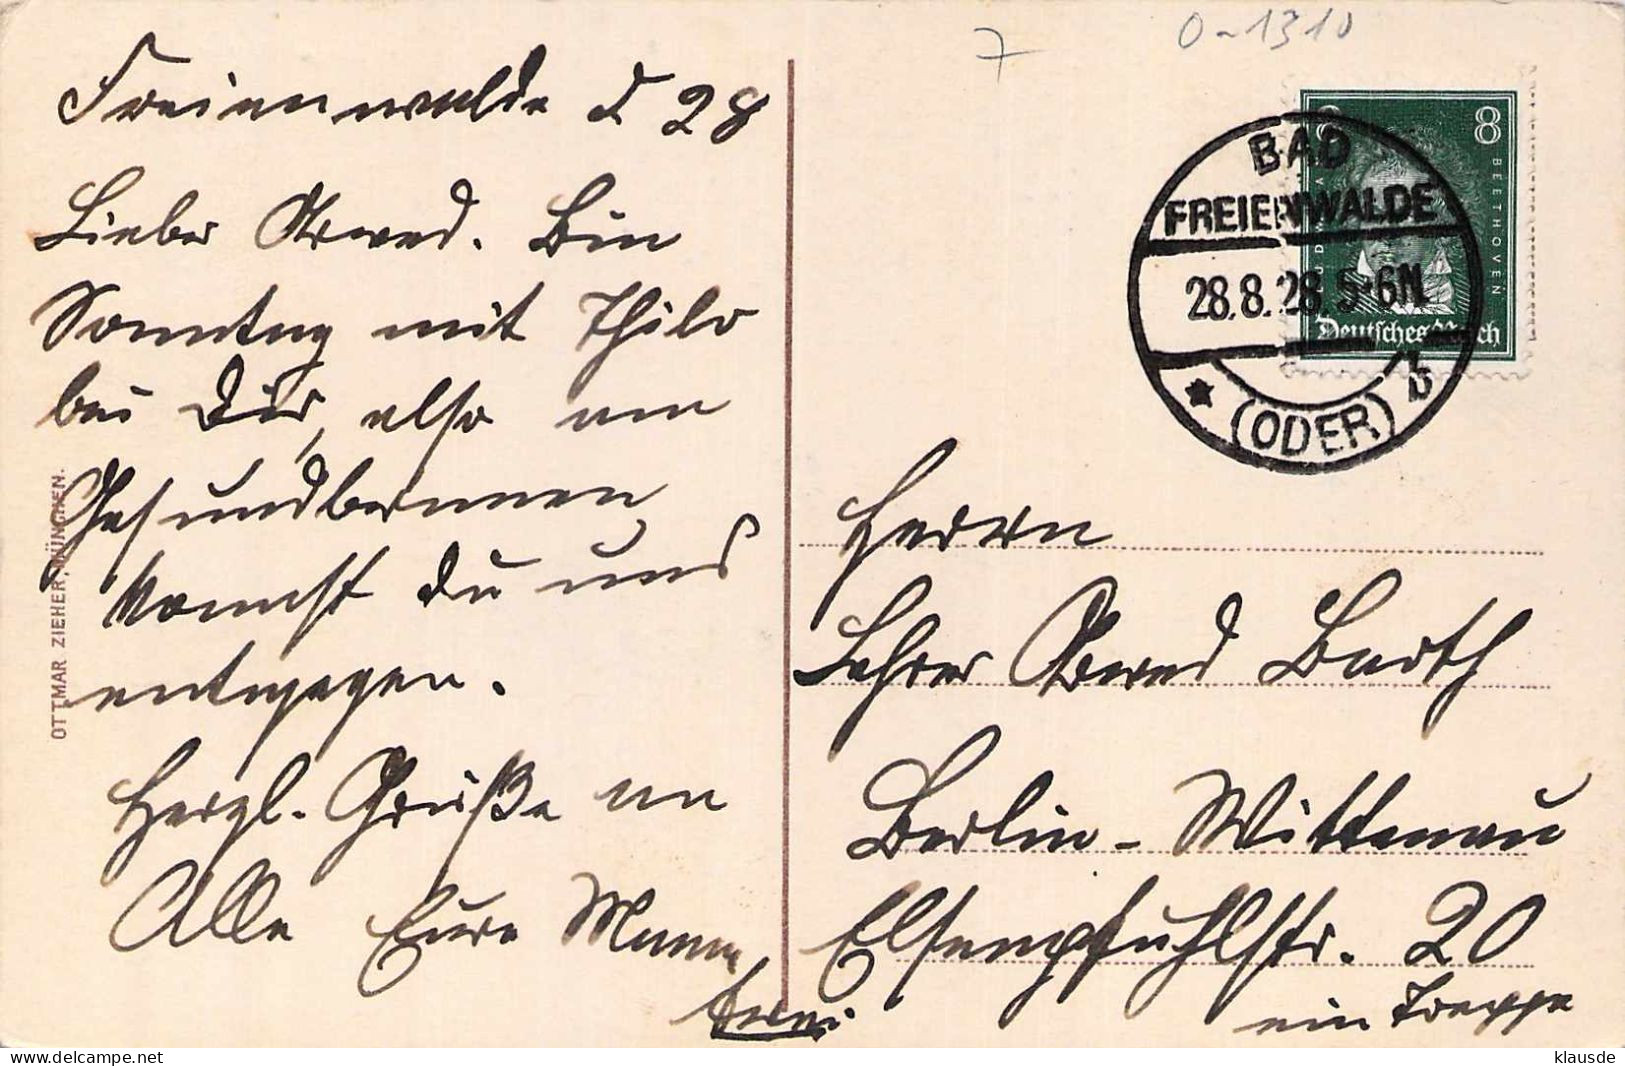 7
0-1310
Freienwalde d 28
Lieber Arwed. Bin
Sonntag mit Thilo
bei Dir, also am
Gesundbrunnen
kannst du uns
entgegen.
Herzl. Grüße an
Alle Eure Mama
OTTMAR ZIEHER, MÜNCHEN.
8 8
BEETHOVEN
Deutsches Reich
BAD
FREIENWALDE
28.8.28. 5-6N.
* (ODER) b
Herrn
Lehrer Arwed Barth
Berlin-Wittenau
Elsenpfuhlstr. 20
ein Treppe
klausde